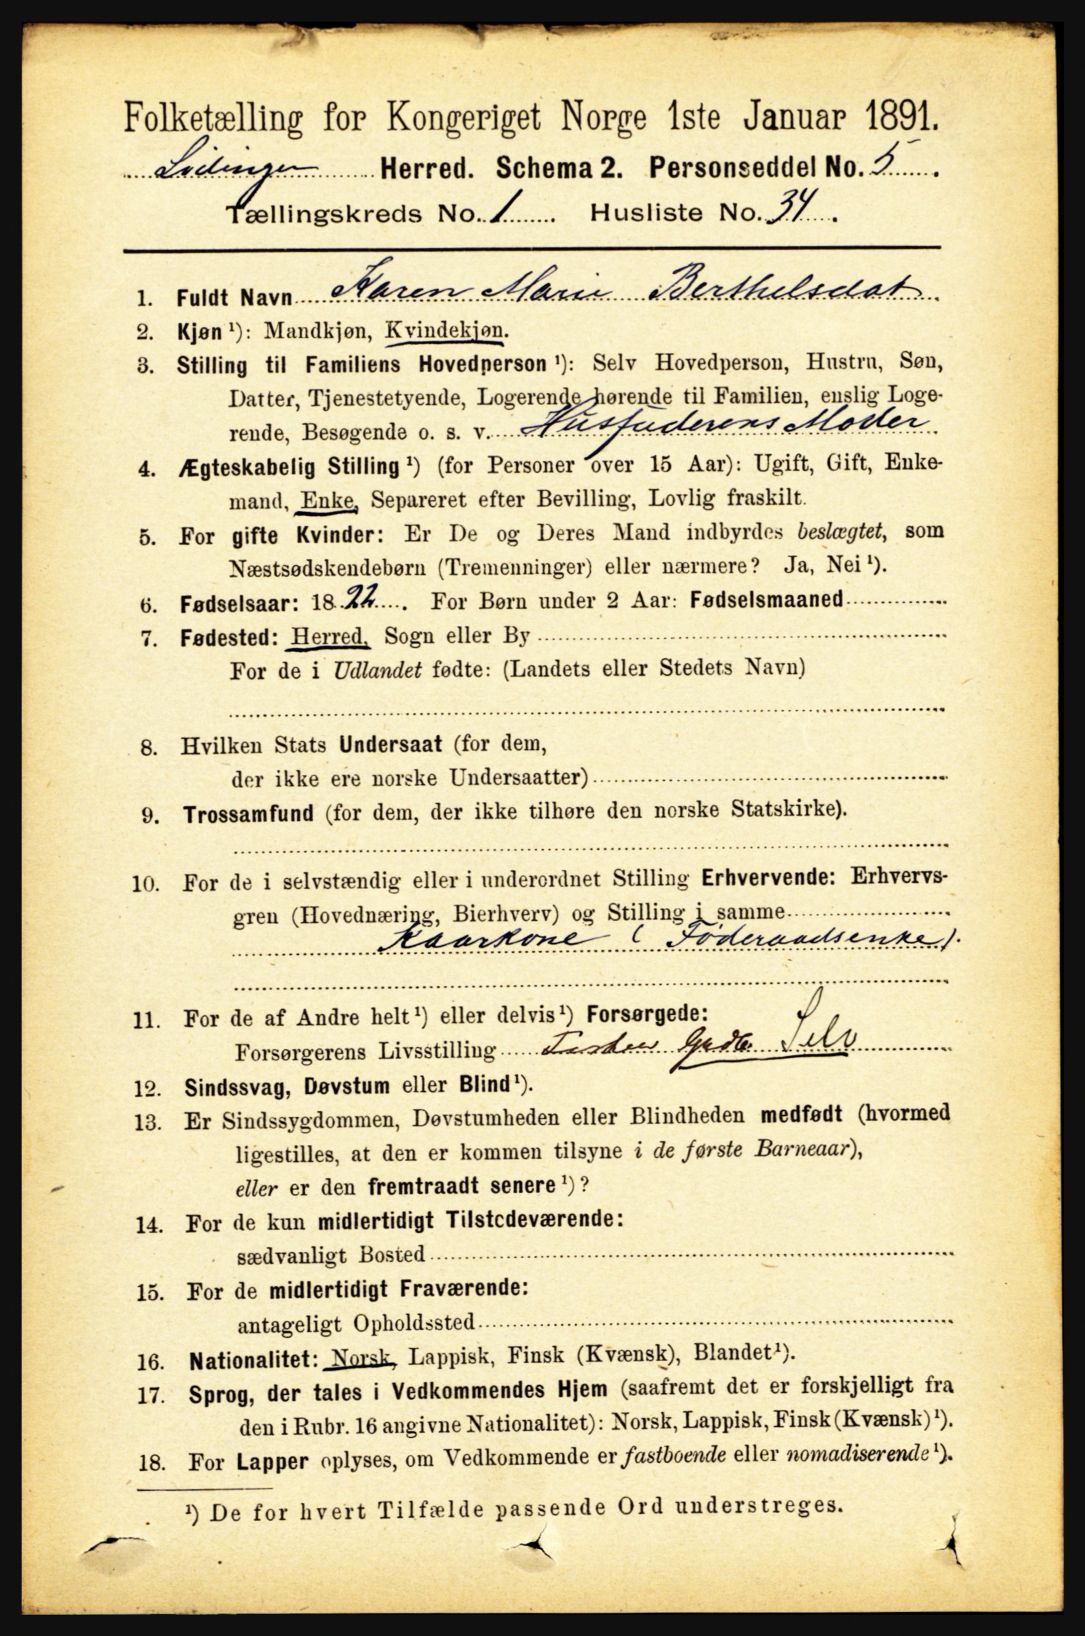 Folketælling for Kongeriget Norge 1ste Januar 1891.
Lødingen Herred. Schema 2. Personseddel No. 5.
Tællingskreds No. 1 Husliste No. 34.
1. Fuldt Navn Karen Marie Berthelsdat.
2. Kjøn ¹): Mandkjøn, Kvindekjøn.
3. Stilling til Familiens Hovedperson ¹): Selv Hovedperson, Hustru, Søn,
Datter, Tjenestetyende, Logerende hørende til Familien, enslig Loge-
rende, Besøgende o. s. v. Husfaderens Moder.
4. Ægteskabelig Stilling ¹) (for Personer over 15 Aar): Ugift, Gift, Enke-
mand, Enke, Separeret efter Bevilling, Lovlig fraskilt.
5. For gifte Kvinder: Er De og Deres Mand indbyrdes beslægtet, som
Næstsødskendebørn (Tremenninger) eller nærmere? Ja, Nei ¹).
6. Fødselsaar: 1822. For Børn under 2 Aar: Fødselsmaaned
7. Fødested: Herred, Sogn eller By
For de i Udlandet fødte: (Landets eller Stedets Navn)
8. Hvilken Stats Undersaat (for dem,
der ikke ere norske Undersaatter)
9. Trossamfund (for dem, der ikke tilhøre den norske Statskirke).
10. For de i selvstændig eller i underordnet Stilling Erhvervende: Erhvervs-
gren (Hovednæring, Bierhverv) og Stilling i samme
Kaarkone (Føderaadsenke).
11. For de af Andre helt ¹) eller delvis ¹) Forsørgede:
Forsørgerens Livsstilling Selv
12. Sindssvag, Døvstum eller Blind ¹).
13. Er Sindssygdommen, Døvstumheden eller Blindheden medfødt (hvormed
ligestilles, at den er kommen tilsyne i de første Barneaar),
eller er den fremtraadt senere ¹)?
14. For de kun midlertidigt Tilstedeværende:
sædvanligt Bosted
15. For de midlertidigt Fraværende:
antageligt Opholdssted
16. Nationalitet: Norsk, Lappisk, Finsk (Kvænsk), Blandet ¹).
17. Sprog, der tales i Vedkommendes Hjem (saafremt det er forskjelligt fra
den i Rubr. 16 angivne Nationalitet): Norsk, Lappisk, Finsk (Kvænsk) ¹).
18. For Lapper oplyses, om Vedkommende er fastboende eller nomadiserende ¹).
¹) De for hvert Tilfælde passende Ord understreges.